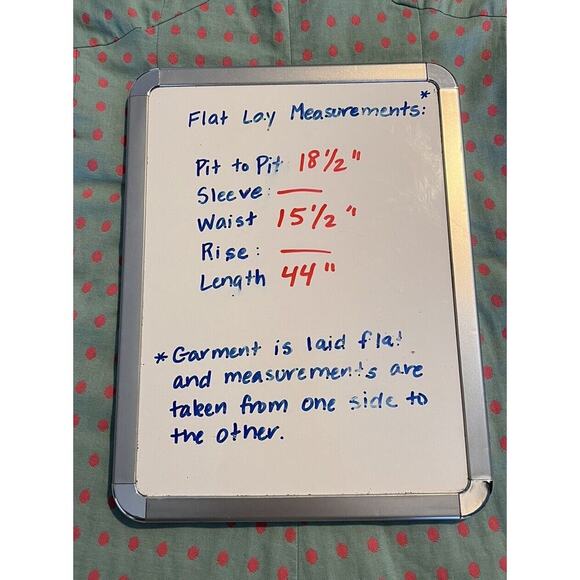 Flat Lay Measurements:*
Pit to Pit 18 1/2"
Sleeve: ___
Waist 15 1/2"
Rise: ___
Length 44"
* Garment is laid flat
and measurements are
taken from one side to
the other.